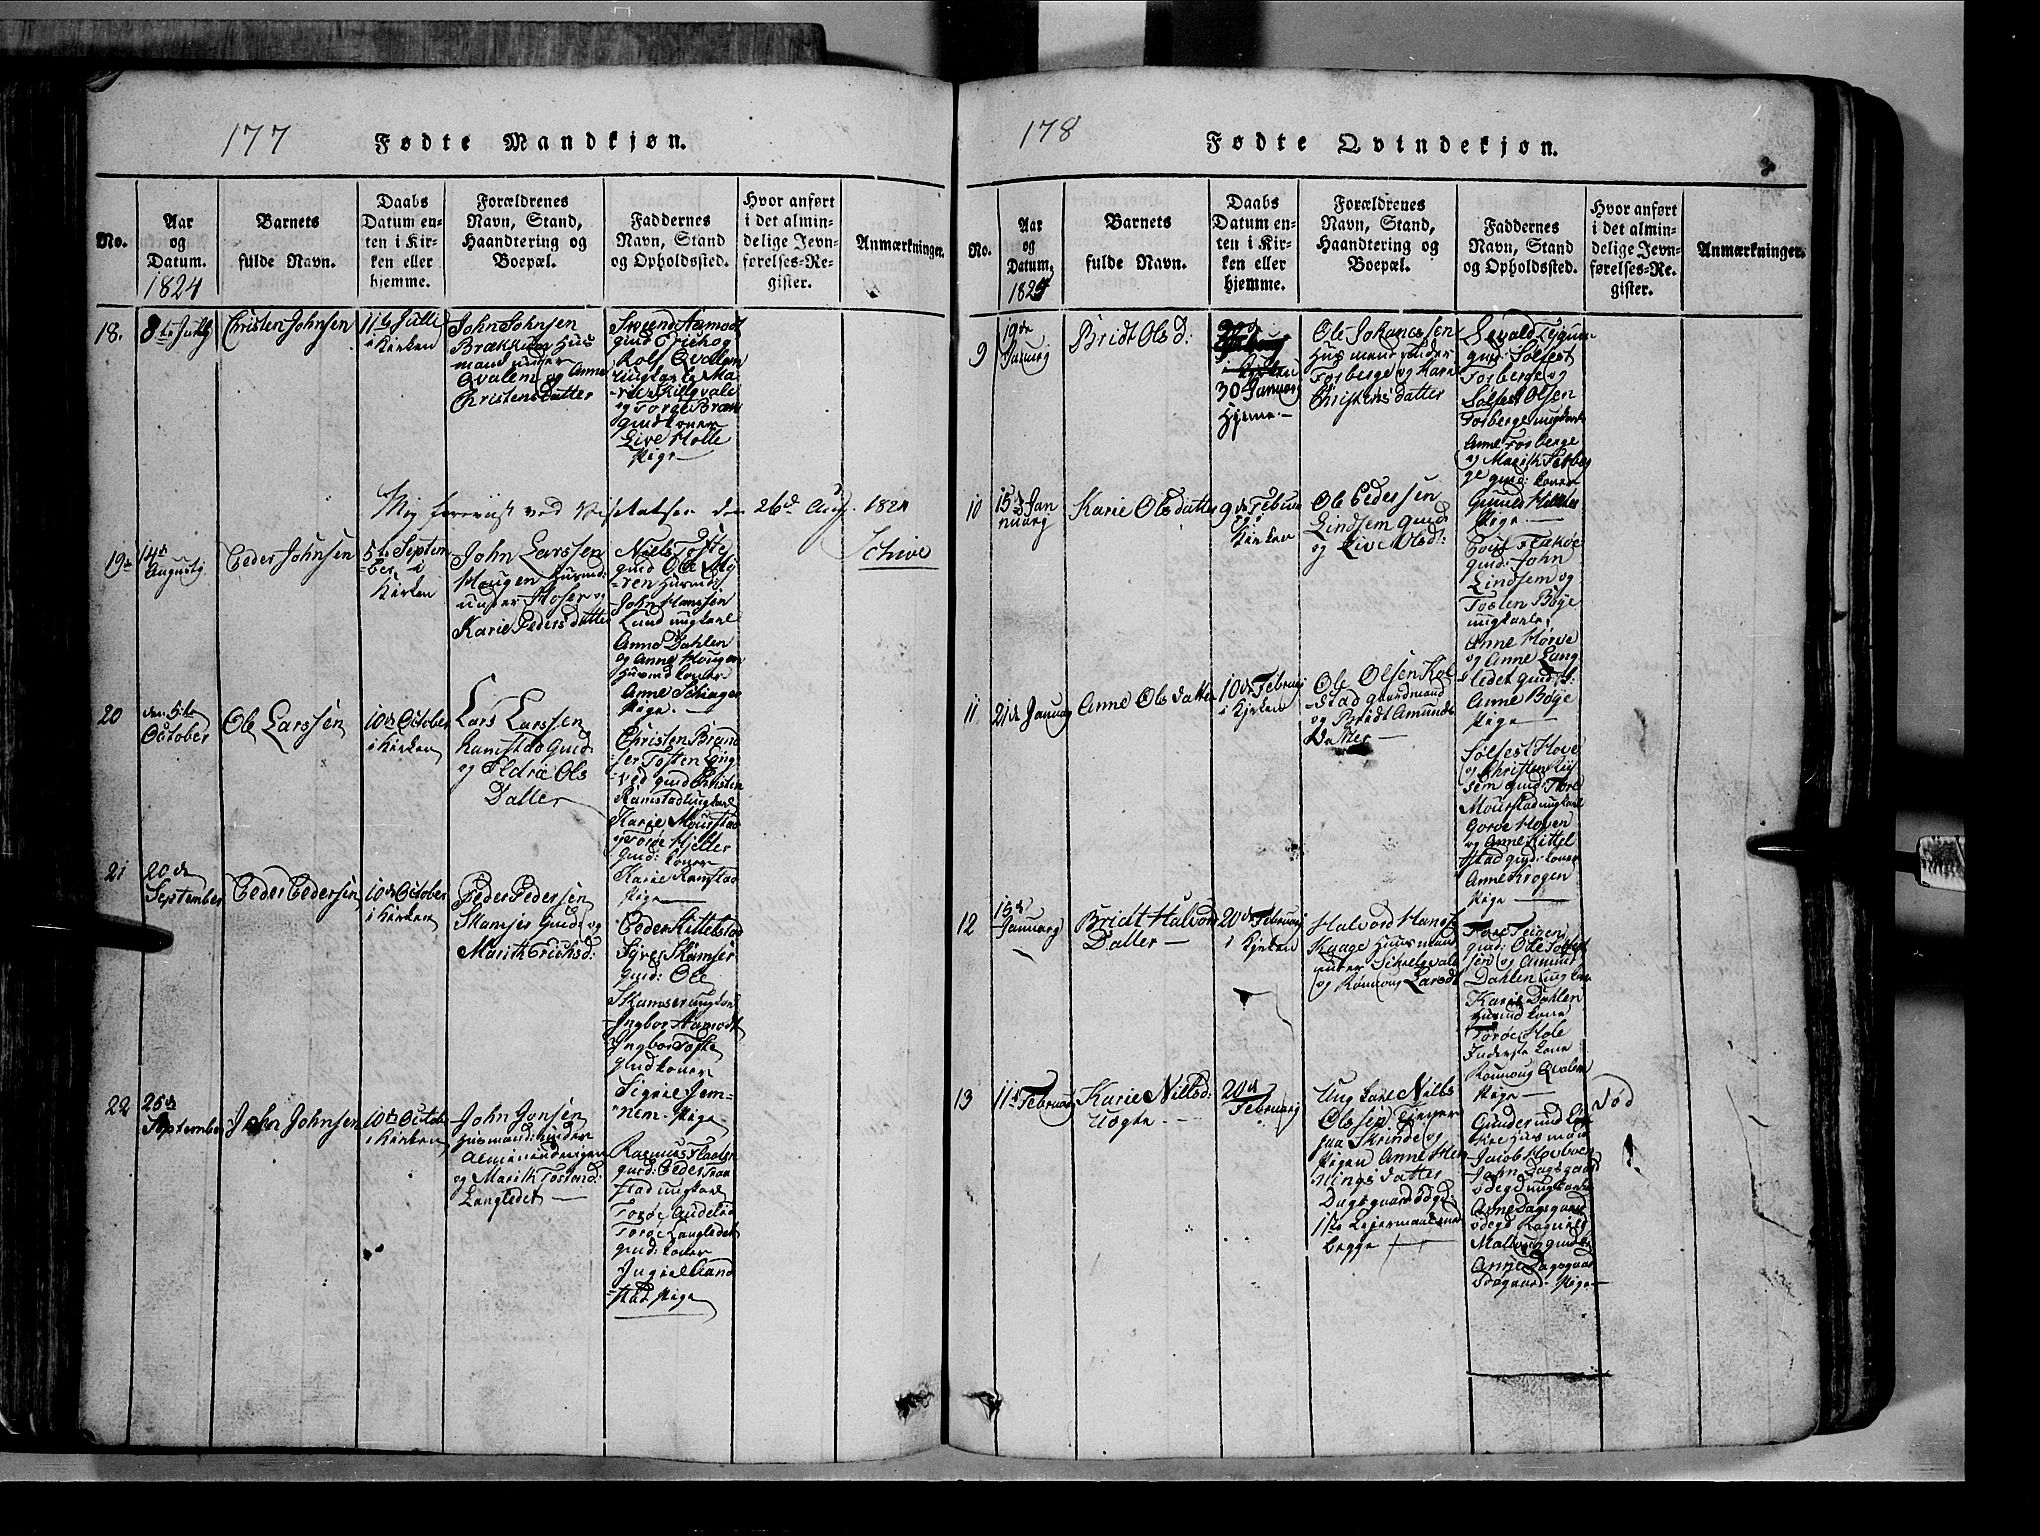 177
Fødte Mandkjøn.
No.
Aar
og
Datum.
1824
Barnets
fulde Navn.
Daabs
Datum en-
ten i Kir-
ken eller
hjemme.
Forældrenes
Navn, Stand,
Haandtering og
Boepæl.
Faddernes
Navn, Stand
og Opholdssted.
Hvor anført
i det almin-
delige Jevn-
førelses-Re-
gister.
Anmærkninger.
18.
8de July
Christen Johnsen
11te Julli
i Kirken
John Johnsen
Brækken Hus
mand under
Qvalem og Anne
Christensdatter
Svend Aamodt
Rolf Qvalem
ungkarle Ma-
og Torge Bram
gmdkoner
Live Molle
Pige
ved Visitatsen den 26de Aug. 1824
Schive
19de
14de
Augusty
Peder Johnsen
5te Septem
ber i
Kirken
John Larssen
Haugen Husmd:
under Moser og
Karie Peders datter
Niels Tofte
gmd Ole My-
ren Husmd:
John Hanssen
Lund ungkarle
Anne Dahlen
og Anne Hougen
Husmd koner
Anne
Pige.
20
den 5te
October
Ole Larssen
10de October
i Kirken
Lars Larssen
Ramstad Gmd:
og Eldrie Ols
Datter
Christen Brand
Tosten Ling
ved gmd Christen
Ramstad ungkarl
Karie Mourstad
og Toroe Hjelter
gmd: koner
Karie Ramstad
Pige
21
20de
September
Peder Pedersen
10de October
i Kirken
Peder Pedersen
Skamser Gmd: og
Marith Erichsd:
Peder Kittelstad
Syver Skamser
gmd: Ole
Skamser ungkarl
Ingbor Aamodt
Ingbor Tofte
gmd koner
Sigrie Jem-
nem Pige
22
25de
September
John Johnsen
10de October
i Kirken
John Jonsen
Husmand: under
og Marith Tostensd:
Langledet
Rasmus Flaaten
gmd: Peder Fraa
stad ungkarl
Toroe
Toroe Langledet
gmd: koner
Ingrie Rand
stad Pige
178
Fødte Qvindekjøn.
No.
Aar
og
Datum.
1824
Barnets
fulde Navn.
Daabs
Datum en-
ten i Kir-
ken eller
hjemme.
Forældrenes
Navn, Stand,
Haandtering og
Boepæl.
Faddernes
Navn, Stand
og Opholdssted.
Hvor anført
i det almin-
delige Jevn-
førelses-Re-
gister.
Anmærkninger.
9
19de
Januarj
Bridt Olsd:
30 Januarj
Hjeme
Ole Johanessen
Husmand under
Forberge og Kari
Christensdatter
gmd: Sølfest
Forberge og
Sølfest Olsen
Forberge ungkarle
Anne Forberge
og Marith Forber
ge gmd: koner
Pige
10
15de Jan
nuarj
Karie Olsdatter
9de Februarj
i
Kirken
Ole Pedersen
Lindsem Gmd:
og Live Olsd:
Poul Flækøe
gmd: John
Lindsem og
Tosten Bøye
ungkarle,
Anne Horve
og Anne Lang
ledet gmd: k:
Anne Bøye
Pige
11
21de Januarj
Anne Ols datter
10de Februarj
i Kjrken
Ole Olsen Kol
stad gaardmand
og Bridt Amunds
Datter
Sølfest Hove
og Christen Riis
sem gmd: Tore
Mourstad ungkarl
Gorve Hoven
og Anne Kittel
stad gmd: koner
Anne Krogen
Pige
12
13de
Januarj
Bridt Halvors
Datter
20de Februarj
i Kjrken
Halvord Hanss:
Kaage Huusmand
under Schelqvale
og Rønnoug Larsdt:
Tore Teigen
gmd: Ole Tofte
Dahlen ungkarl
Karie Dahlen
Husmd kone
Toroe Hole
Inderste kone
Rønnoug Qvalem
Pige
13
11te Februarj
Karie Nielsd:
Uægte
20de
Februarj
Ung karl Niels
Olssen Tiener
paa Skrinde og
Pigen Anne Hem
mings datter
Dagsgaard Ødegd:
1ste Lejermaal med
begge
John Dagsgaard
Ødegd ungkarle
Anne Dagsgaard
Ødegd Ragnild
Anne Dagsgaard
Ødegaard Pige
død